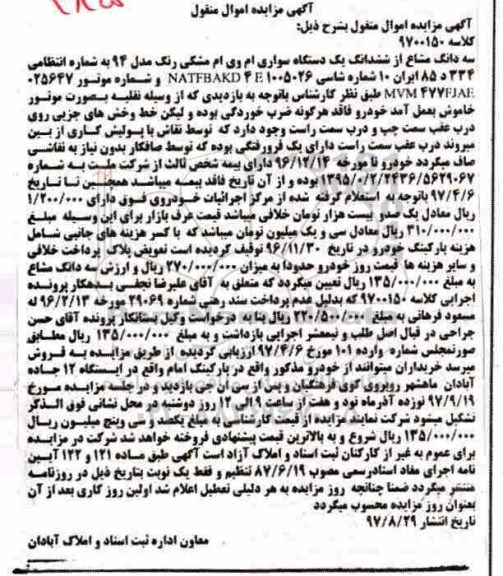 آگهی مزایده اموال منقول
آگهی مزایده اموال منقول بشرح ذیل:
کلاسه ۹۷۰۰۱۵۰
سه دانگ مشاع از ششدانگ یک دستگاه سواری ام وی ام مشکی رنگ مدل ۹۴ به شماره انتظامی
۳۳۴ د ۸۵ ایران ۱۰ شماره شاسی NATFBAKD ۴ E ۱۰۰۵۰۲۶ و شماره موتور ۰۲۵۶۴۷
MVM ۴۷۷FJAE طبق نظر کارشناس باتوجه به بازدیدی که از وسیله نقلیه بصورت موتور
خاموش بعمل آمد خودرو فاقد هرگونه ضرب خوردگی بوده و لیکن خط وخش های جزیی روی
درب عقب سمت چپ و درب سمت راست وجود دارد که توسط نقاش با پولیش کاری از بین
میروند درب عقب سمت راست دارای یک فرورفتگی بوده که توسط صافکار بدون نیاز به نقاشی
صاف میگردد خودرو تا مورخه ۹۶/۱۲/۱۴ دارای بیمه شخص ثالث از شرکت ملت به شماره
۱۳۹۵/۰۲/۲۴۳۶/۵۶۲۹۰۶۷ بوده و از آن تاریخ فاقد بیمه میباشد همچنین تا تاریخ
۹۷/۴/۶ باتوجه به استعلام گرفته شده از مرکز اجرائیات خودروی فوق دارای ۱/۲۰۰/۰۰۰
ریال معادل یک صدو بیست هزار تومان خلافی میباشد قیمت عرف بازار برای این وسیله مبلغ
۳۱۰/۰۰۰/۰۰۰ ریال معادل سی و یک میلیون تومان میباشد که با کسر هزینه های جانبی شامل
هزینه پارکینگ خودرو در تاریخ ۹۶/۱۱/۳۰ توقیف گردیده است تعویض پلاک پرداخت خلافی
و سایر هزینه ها قیمت روز خودرو حدودا به میزان ۲۷۰/۰۰۰/۰۰۰ ریال و ارزش سه دانگ مشاع
به مبلغ ۱۳۵/۰۰۰/۰۰۰ ریال تعیین میگردد که متعلق به آقای علیرضا نجفی بدهکار پرونده
اجرایی کلاسه ۹۷۰۰۱۵۰ که بدلیل عدم پرداخت سند رهنی شماره ۲۹۰۶۹ مورخه ۹۶/۲/۱۳ له
مسعود فرهانی به مبلغ ۲۲۰/۵۰۰/۰۰۰ ریال بنا به درخواست وکیل بستانکار پرونده آقای حسن
جراحی در قبال اصل طلب و نیمعشر اجرایی بازداشت و به مبلغ ۱۳۵/۰۰۰/۰۰۰ ریال مطابق
صورتمجلس شماره وارده ۱۰۱ مورخ ۹۷/۴/۶ ارزیابی گردیده از طریق مزایده به فروش
میرسد خریداران میتوانند از خودرو مذکور واقع در پارکینگ امام واقع در ایستگاه ۱۲ جاده
آبادان ماهشهر روبروی کوی فرهنگیان و پس از سی آاف بازدید و در جلسه مزایده مورخ
۹۷/۹/۱۹ نوزده آذرماه نود و هفت از ساعت ۹ الی ۱۲ روز دوشنبه در محل نشانی فوق الذکر
تشکیل میشود شرکت نمایند مزایده از قیمت کارشناسی به مبلغ یکصد و سی وپنج میلیون ریال
۱۳۵/۰۰۰/۰۰۰ ریال شروع و به بالاترین قیمت پیشنهادی فروخته خواهد شد شرکت در مزایده
برای عموم به غیر از کارکنان ثبت اسناد و املاک آزاد است آگهی طبق ماده ۱۲۱ و ۱۲۲ آیین
نامه اجرای مفاد اسنادرسمی مصوب ۸۷/۶/۱۹ تنظیم و فقط یک نوبت بتاریخ ذیل در روزنامه
منتشر میگردد ضمنا چنانچه روز مزایده به هر دلیلی تعطیل اعلام شد اولین روز کاری بعد از آن
بعنوان روز مزایده محسوب میگردد
تاریخ انتشار ۹۷/۸/۲۹
معاون اداره ثبت اسناد و املاک آبادان